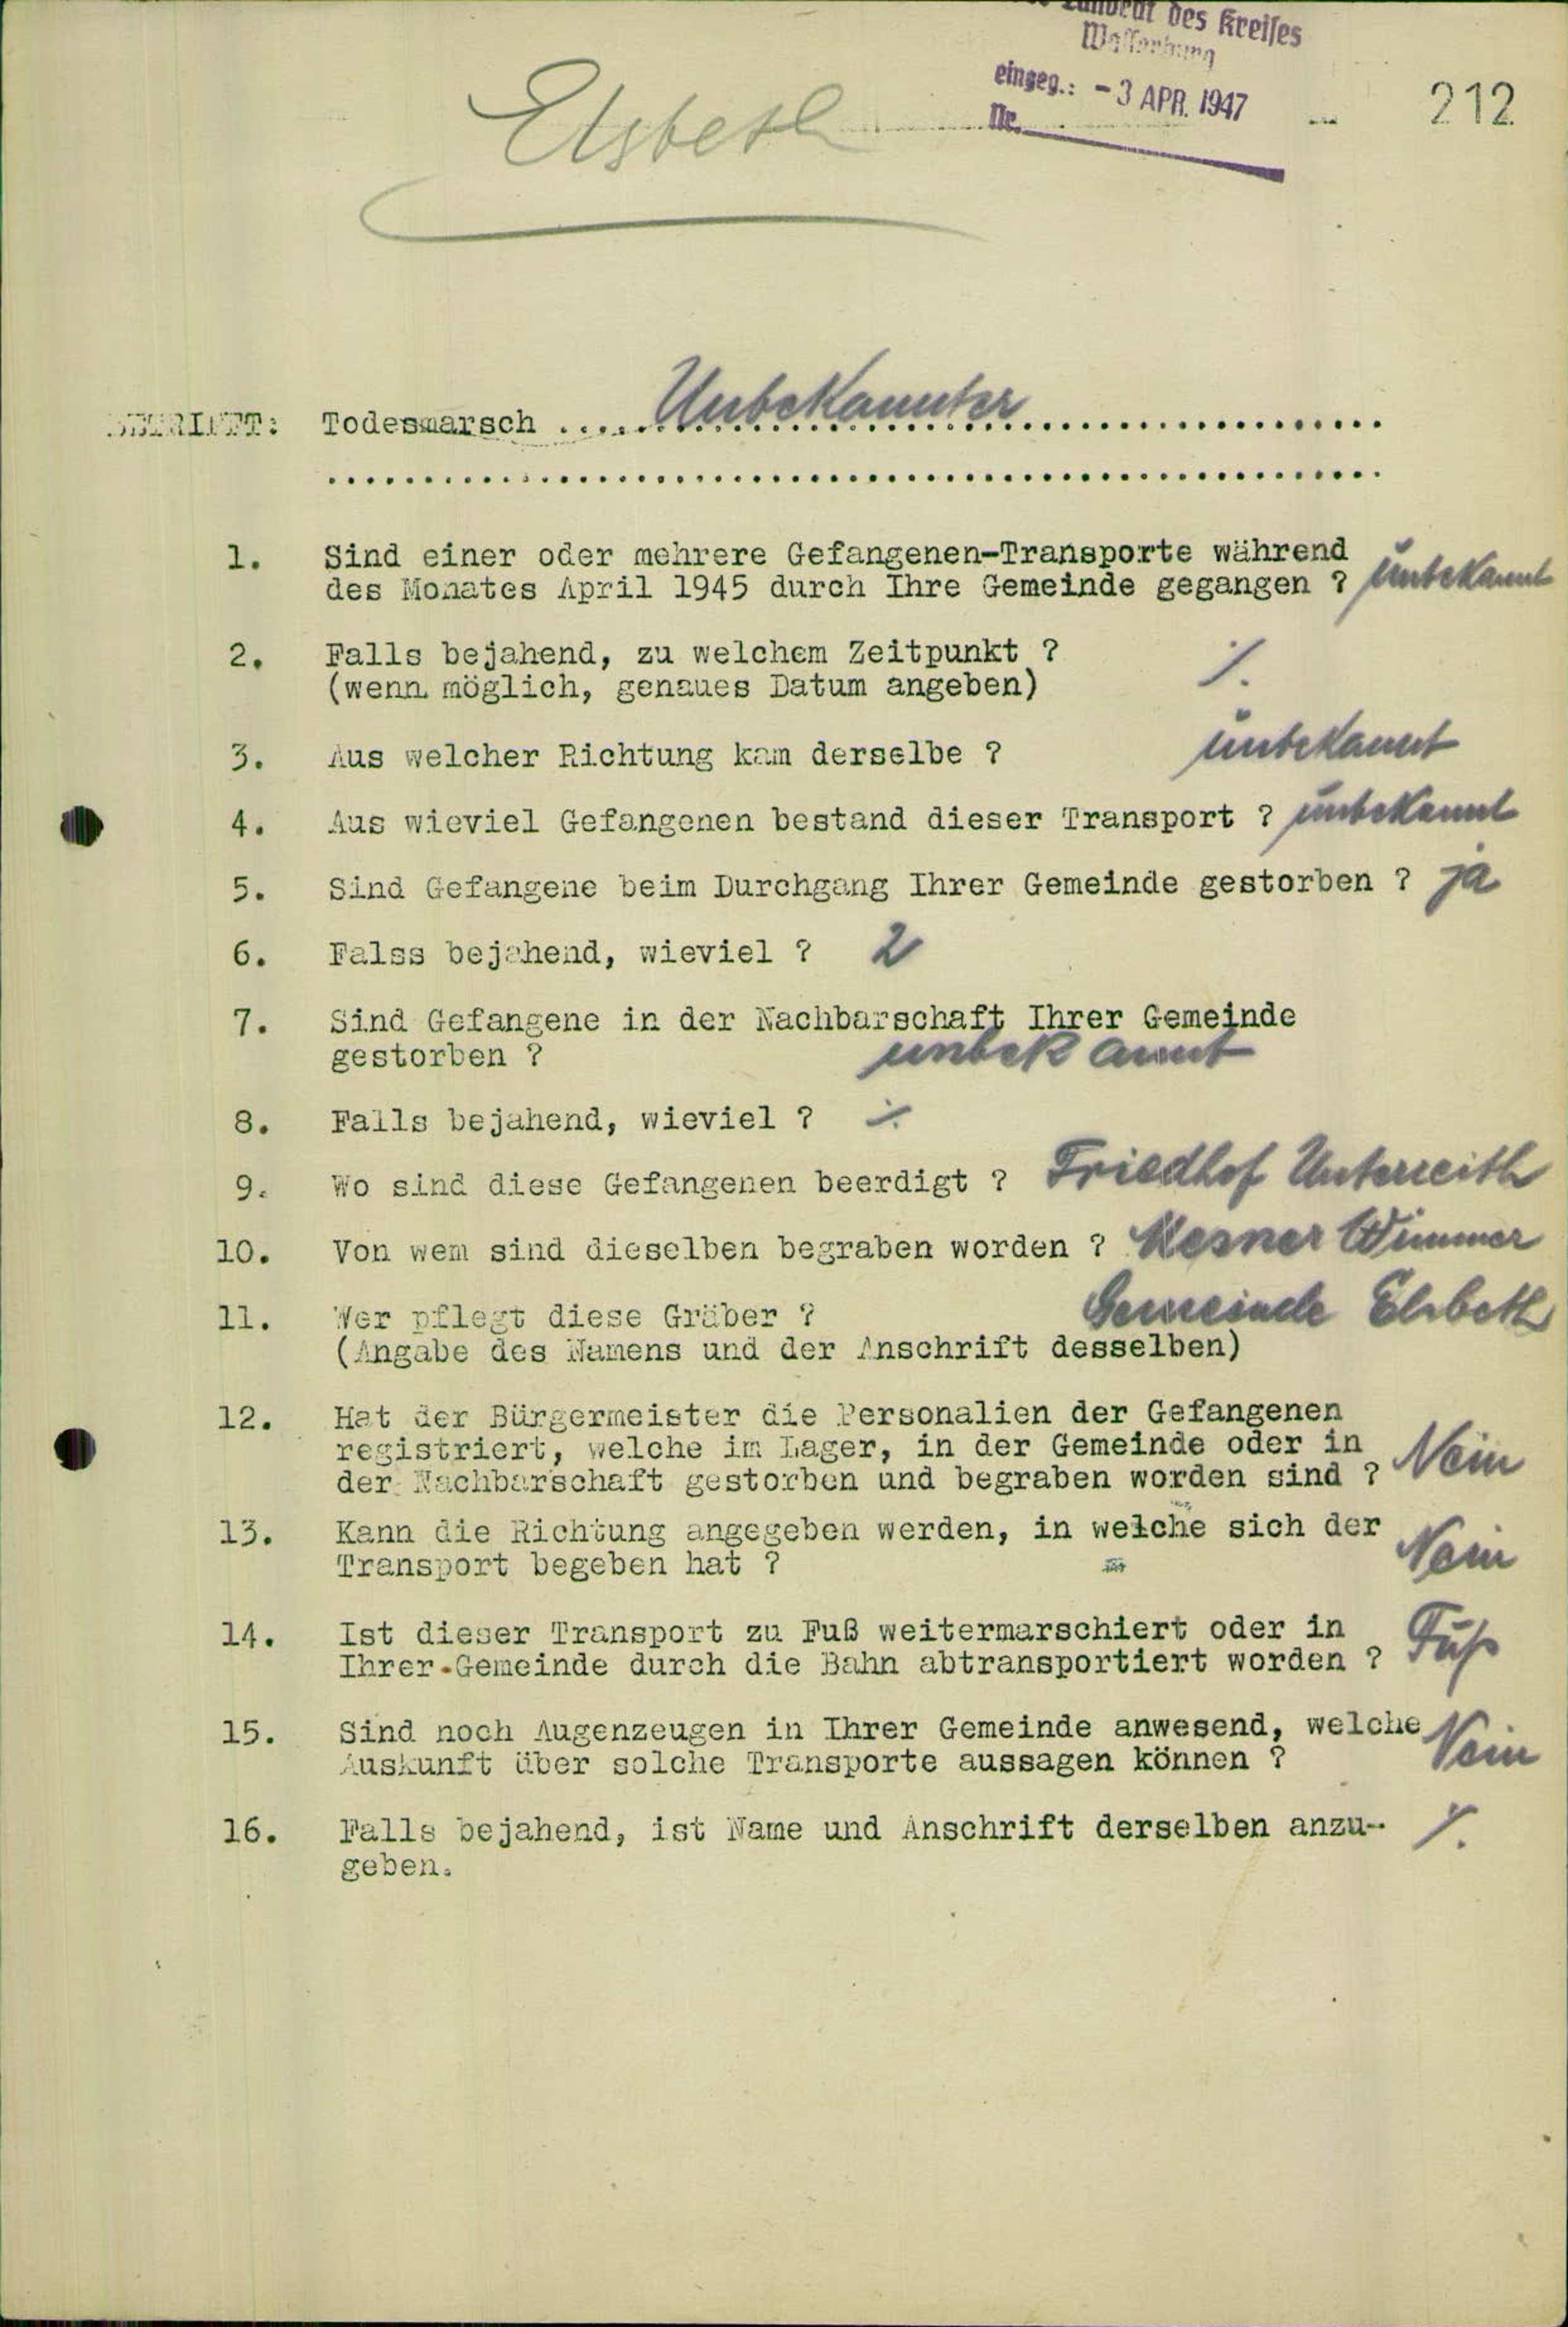 Landrat des Kreises
Wasserburg
eingeg.: - 3 APR. 1947
Nr.
212
Elsbeth
BETRIFFT: Todesmarsch ..... Unbekannter
1. Sind einer oder mehrere Gefangenen-Transporte während
des Monates April 1945 durch Ihre Gemeinde gegangen ? unbekannt
2. Falls bejahend, zu welchem Zeitpunkt ?
(wenn möglich, genaues Datum angeben) ./.
3. Aus welcher Richtung kam derselbe ? unbekannt
4. Aus wieviel Gefangenen bestand dieser Transport ? unbekannt
5. Sind Gefangene beim Durchgang Ihrer Gemeinde gestorben ? ja
6. Falss bejahend, wieviel ? 2
7. Sind Gefangene in der Nachbarschaft Ihrer Gemeinde
gestorben ? unbekannt
8. Falls bejahend, wieviel ? ./.
9. Wo sind diese Gefangenen beerdigt ? Friedhof Unterreith
10. Von wem sind dieselben begraben worden ? Mesner Wimmer
11. Wer pflegt diese Gräber ? Gemeinde Elsbeth
(Angabe des Namens und der Anschrift desselben)
12. Hat der Bürgermeister die Personalien der Gefangenen
registriert, welche im Lager, in der Gemeinde oder in
der Nachbarschaft gestorben und begraben worden sind ? Nein
13. Kann die Richtung angegeben werden, in welche sich der
Transport begeben hat ? Nein
14. Ist dieser Transport zu Fuß weitermarschiert oder in
Ihrer Gemeinde durch die Bahn abtransportiert worden ? Fuß
15. Sind noch Augenzeugen in Ihrer Gemeinde anwesend, welche
Auskunft über solche Transporte aussagen können ? Nein
16. Falls bejahend, ist Name und Anschrift derselben anzu- ./.
geben.